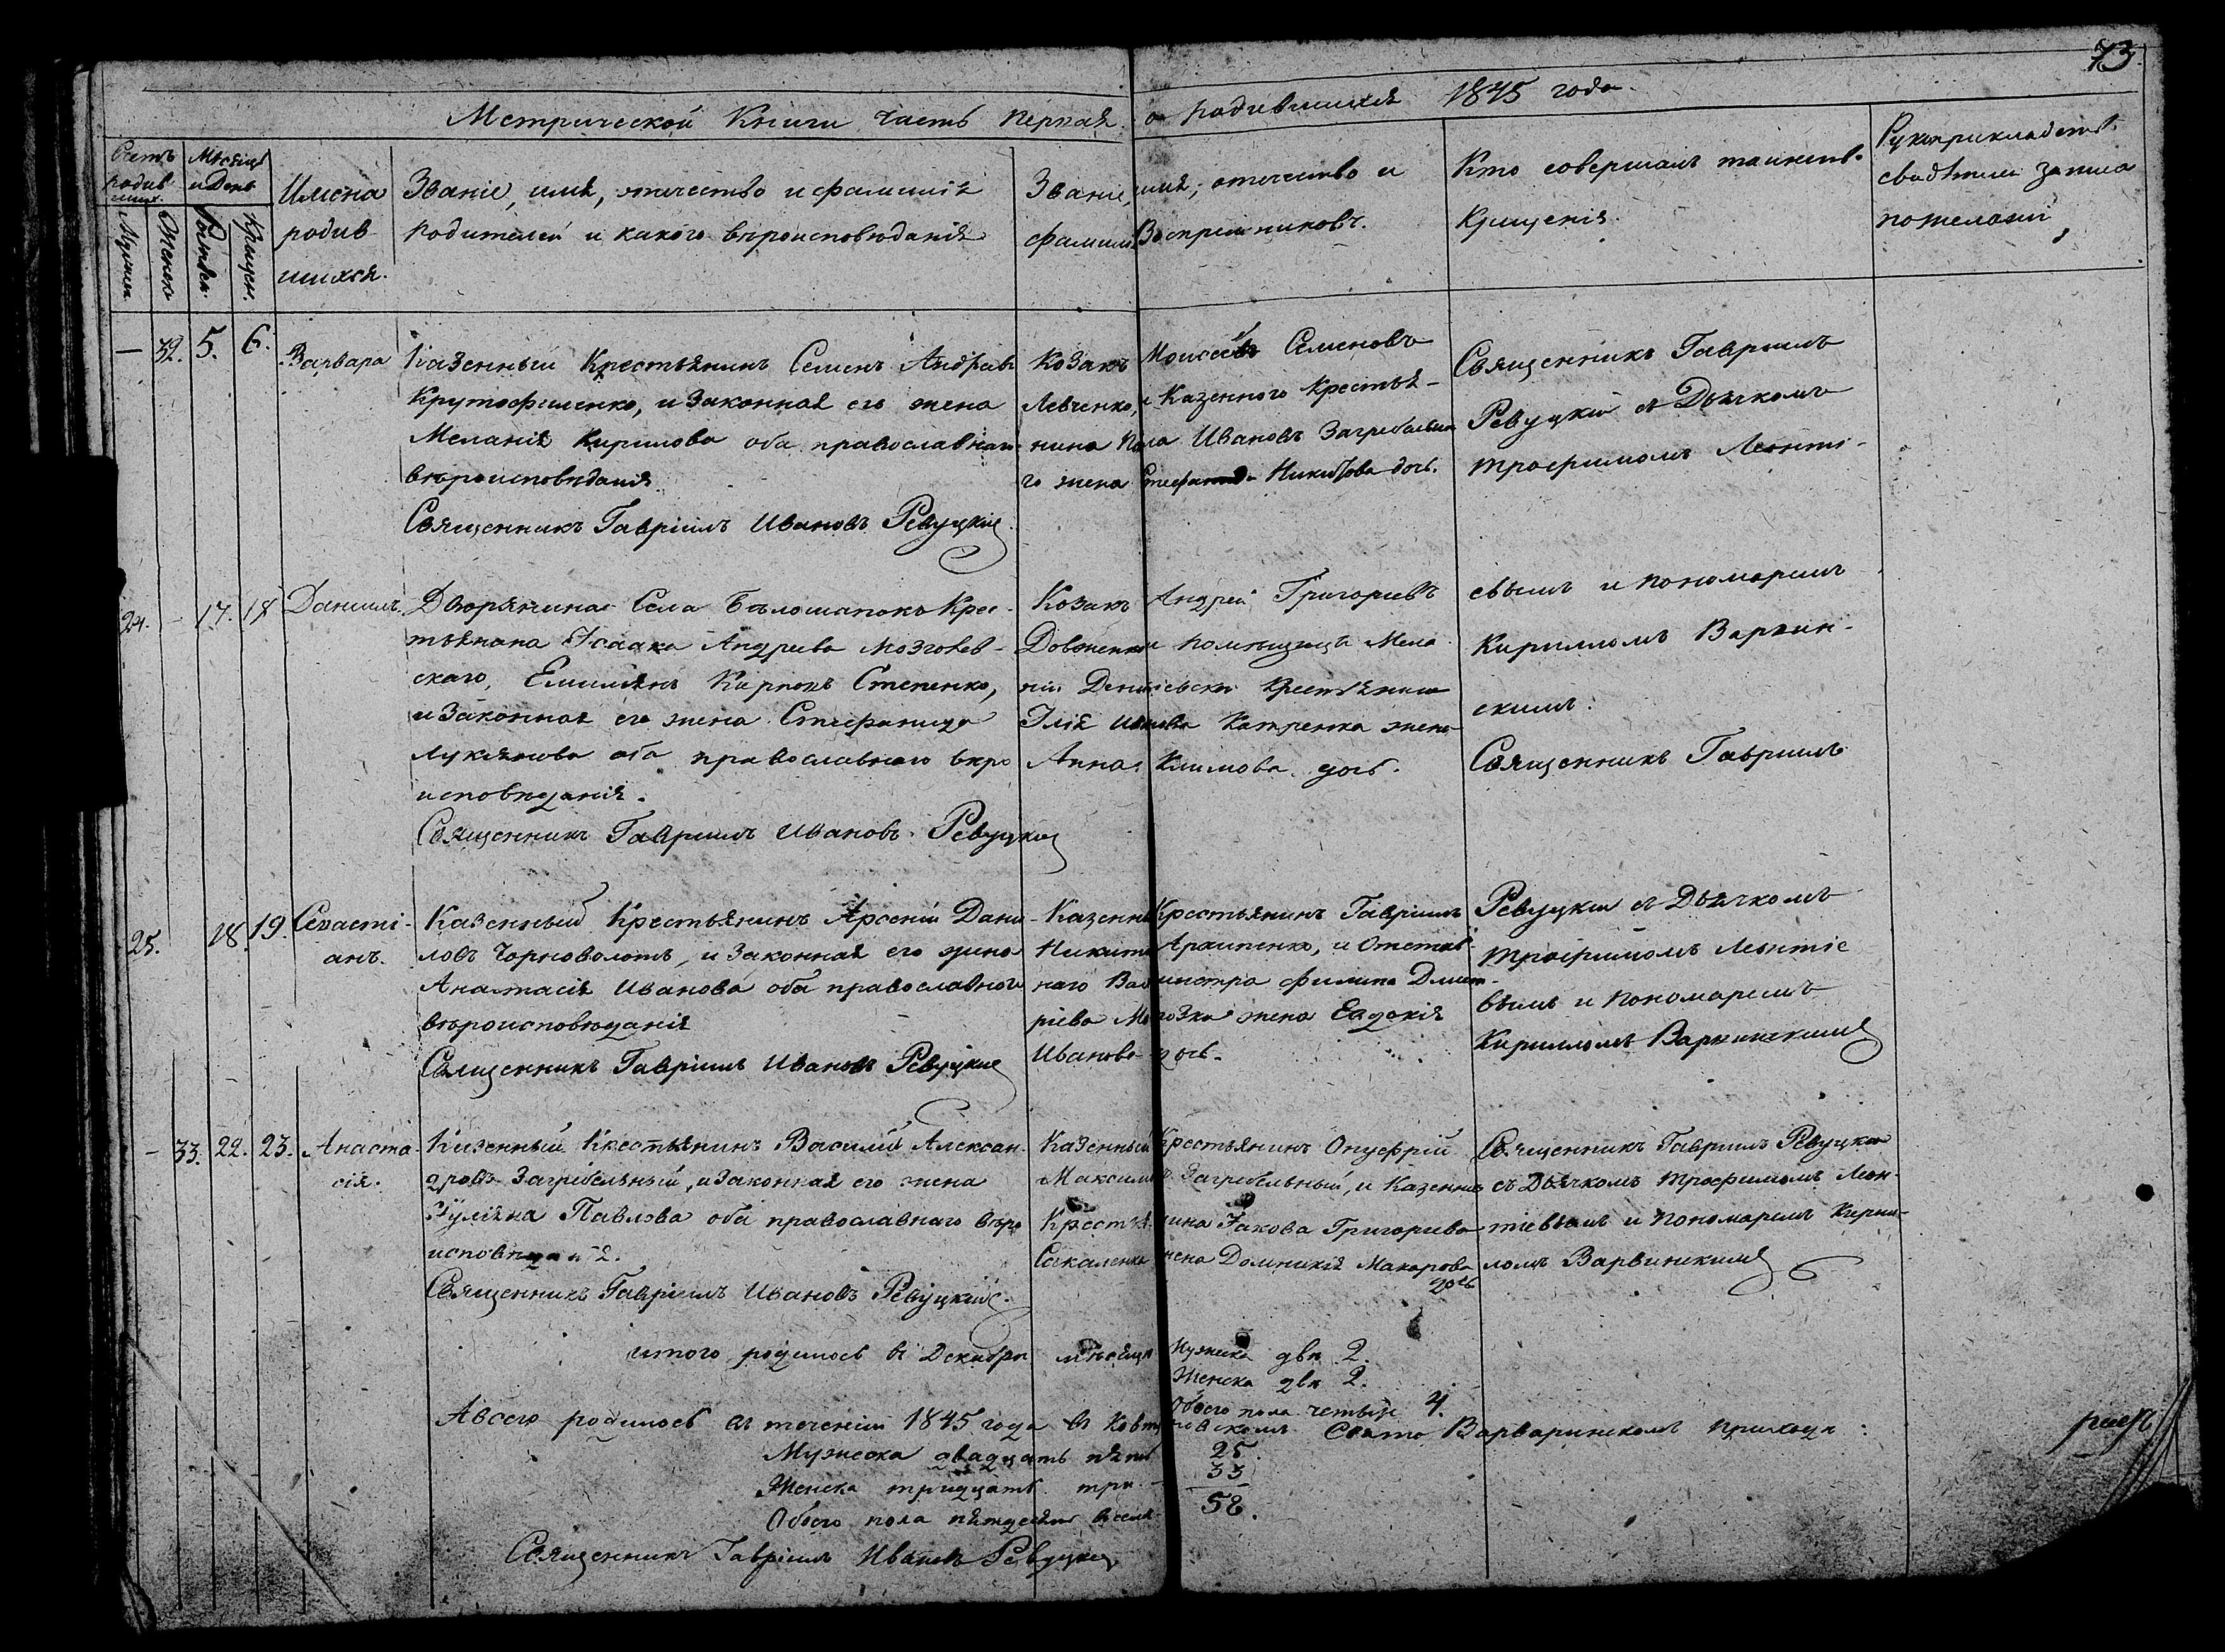 73.
Метрической Книги Часть Первая о родившихся 1845 года.
Счетъ родив шихся.
Мѣсяцъ и День
Мужеска
Женска
Рожденія.
Крещен.
Имена
родив
шихся.
Званіе, имя, отчество и фамилія
родителей и какого вѣроисповѣданія
Званіе, имя, отчество и
фамилія Воспріемниковъ.
Кто совершалъ таинство
Крещенія.
Рукоприкладство
свидѣтелей записи
по желанію
— 32. 5. 6.
Варвара
Казенный Крестьянинъ Семенъ Андреевъ
Крутофиленко, и Законная его жена
Меланія Кирилова оба православнаго
вѣроисповѣданія.
Священникъ Гавріилъ Ивановъ Ревуцкій
Козакъ Моисей Семеновъ
Левченко, и Казенного Крестья-
нина Ивановъ Загребельна
го жена Никитова дочь.
Священникъ Гавріилъ
Ревуцкій съ Дьячкомъ
Трофимомъ Леонті-
24. - 17. 18
Даніилъ.
Дворянина Села Бѣлошапокъ Крес-
тьянина Исаака Андреева Мозголев-
скаго, Емиліянъ Карповъ Степенко,
и Законная его жена Стефанида
Лукянова оба православнаго вѣро
исповѣданія.
Священникъ Гавріилъ Ивановъ Ревуцкій
Козакъ Андрей Григорьевъ
Довженко и помѣщицы Мела
ніи Крестьянина
Илія Иванова Катренка жена
Анна Климова дочь.
евымъ и пономаремъ
Кириломъ Варвин-
скимъ.
Священникъ Гавріилъ
25. 18. 19.
Севасті-
анъ.
Казенный Крестьянинъ Арсеній Дани-
ловъ Чорноволотъ, и Законная его жена
Анастасія Иванова оба православного
вѣроисповѣданія
Священникъ Гавріилъ Ивановъ Ревуцкій
Казенны Крестьянинъ Гавріилъ
Никитинъ Архипенко, и Отстав-
наго Филипа Дмит-
ріева жена Евдокія
Иванова дочь.
Ревуцкій съ Дьячкомъ
Трофимомъ Леонтіе
вымъ и Пономаремъ
Кириломъ Варвинскимъ
- 33. 22. 23.
Анаста-
сія.
Казенный Крестьянинъ Василій Алексан-
дровъ Загребельный, и Законная его жена
Іуліяна Павлова оба православнаго вѣро
исповѣданія.
Священникъ Гавріилъ Ивановъ Ревуцкій.
Казенный Крестьянинъ Онуфрій
Максимовъ Загребельный, и Казенного
Крестьянина Іакова Григорьева
Сакаленка жена Домникія Макарова
дочь
Священникъ Гавріилъ Ревуцкій
съ Дьячкомъ Трофимомъ Леон-
тіевымъ и Пономаремъ Кири-
ломъ Варвинскимъ
итого родилось въ Декабрѣ мѣсяцѣ Мужска двѣ 2.
Женска двѣ 2.
Обоего пола четыре 4.
А всего родилось въ теченіи 1845 года въ Свято Варваринскомъ приходѣ:
Мужеска двадцать пять 25.
Женска тридцать три - 33
Обоего пола пятдесятъ восемь 58.
Священникъ Гавріилъ Ивановъ Ревуцкій